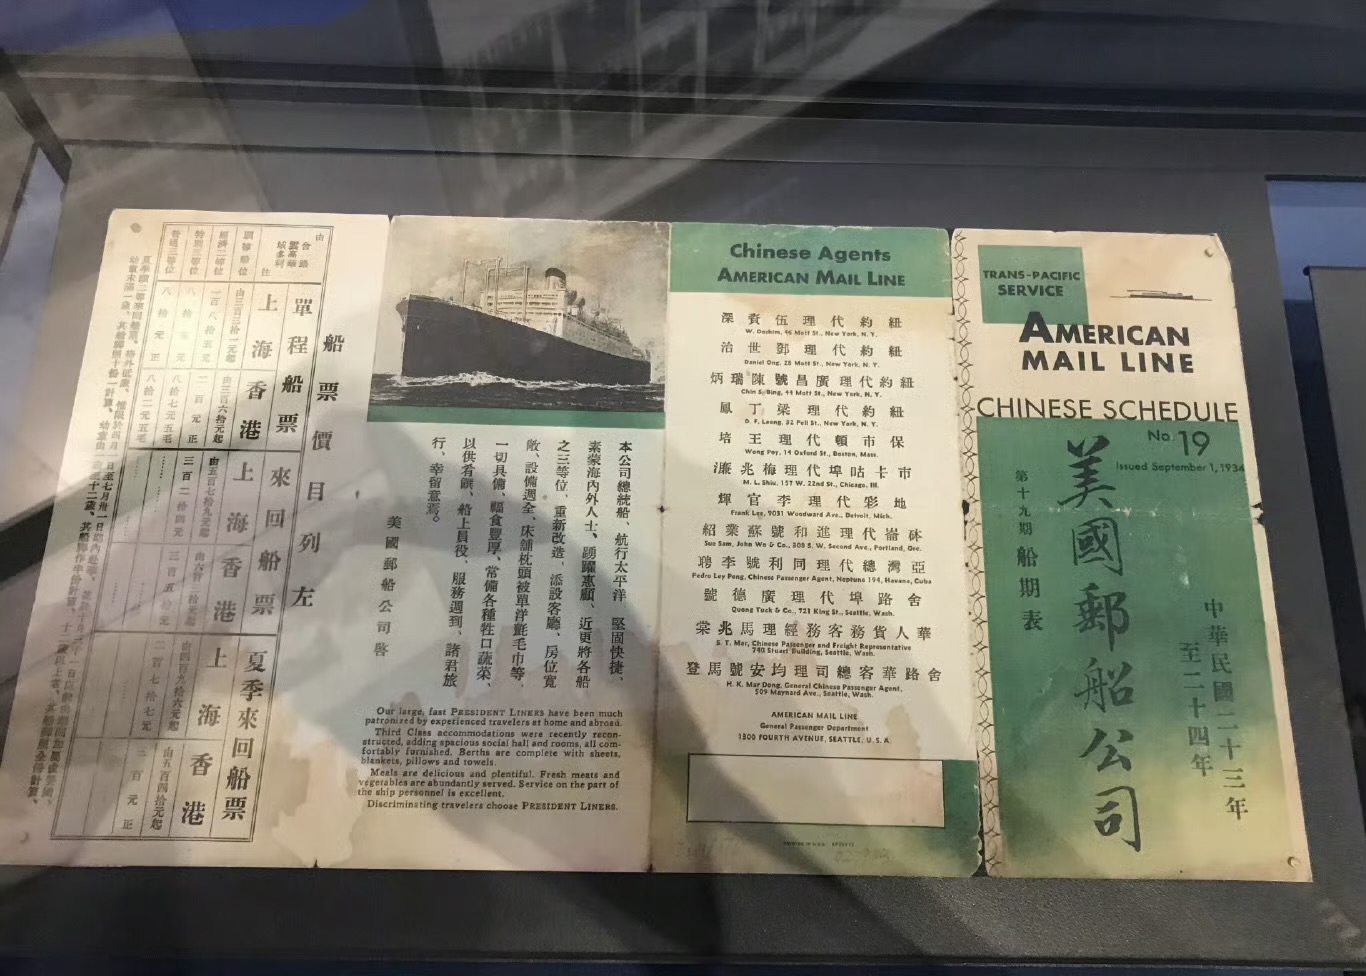 TRANS-PACIFIC
SERVICE
AMERICAN
MAIL LINE
CHINESE SCHEDULE
No. 19
Issued September 1, 1934
中華民國二十三年
至二十四年
美國郵船公司
第十九期船期表
Chinese Agents
AMERICAN MAIL LINE
深貴伍理代約紐
W. Doshim, 46 Mott St., New York, N. Y.
治世鄧理代約紐
Daniel Ong, 28 Mott St., New York, N. Y.
炳瑞陳號昌廣理代約紐
Chin S. Bing, 44 Mott St., New York, N. Y.
鳳丁梁理代約紐
D. F. Leong, 32 Pell St., New York, N. Y.
培王理代頓市保
Wong Poy, 14 Oxford St., Boston, Mass.
濂兆梅理代埠咕卡市
M. L. Shiu, 157 W. 22nd St., Chicago, Ill.
輝官李理代彩地
Frank Lee, 9031 Woodward Ave., Detroit, Mich.
紹業蘇號和進理代崙砵
Sue Sam, John Wo & Co., 303 S. W. Second Ave., Portland, Ore.
聘李號利同理代總灣亞
Pedro Ley Peng, Chinese Passenger Agent, Neptuno 194, Havana, Cuba
號德廣理代埠路舍
Quong Tuck & Co., 721 King St., Seattle, Wash.
棠兆馬理經務客務貨人華
S. T. Mar, Chinese Passenger and Freight Representative
740 Stuart Building, Seattle, Wash.
登馬號安均理司總客華路舍
H. K. Mar Dong, General Chinese Passenger Agent,
509 Maynard Ave., Seattle, Wash.
AMERICAN MAIL LINE
General Passenger Department
1300 FOURTH AVENUE, SEATTLE, U. S. A.
PRINTED IN U.S.A.
本公司總統船、航行太平洋、堅固快捷、
素蒙海內外人士、踴躍惠顧、近更將各船
之三等位、重新改造、添設客廳、房位寬
敞、設備週全、床舖枕頭被單洋氈毛巾等、
一切具備、膳食豐厚、常備各種牲口蔬菜、
以供肴饌、船上員役、服務週到、諸君旅
行、幸留意焉。
美國郵船公司啓
Our large, fast PRESIDENT LINERS have been much
patronized by experienced travelers at home and abroad.
Third Class accommodations were recently recon-
structed, adding spacious social hall and rooms, all com-
fortably furnished. Berths are complete with sheets,
blankets, pillows and towels.
Meals are delicious and plentiful. Fresh meats and
vegetables are abundantly served. Service on the part of
the ship personnel is excellent.
Discriminating travelers choose PRESIDENT LINERS.
船票價目列左
單程船票
上海
香港
來回船票
上海
香港
夏季來回船票
上海
香港
由舍路
雲高華
域多利
往
經濟二等位
特別三等位
普通三等位